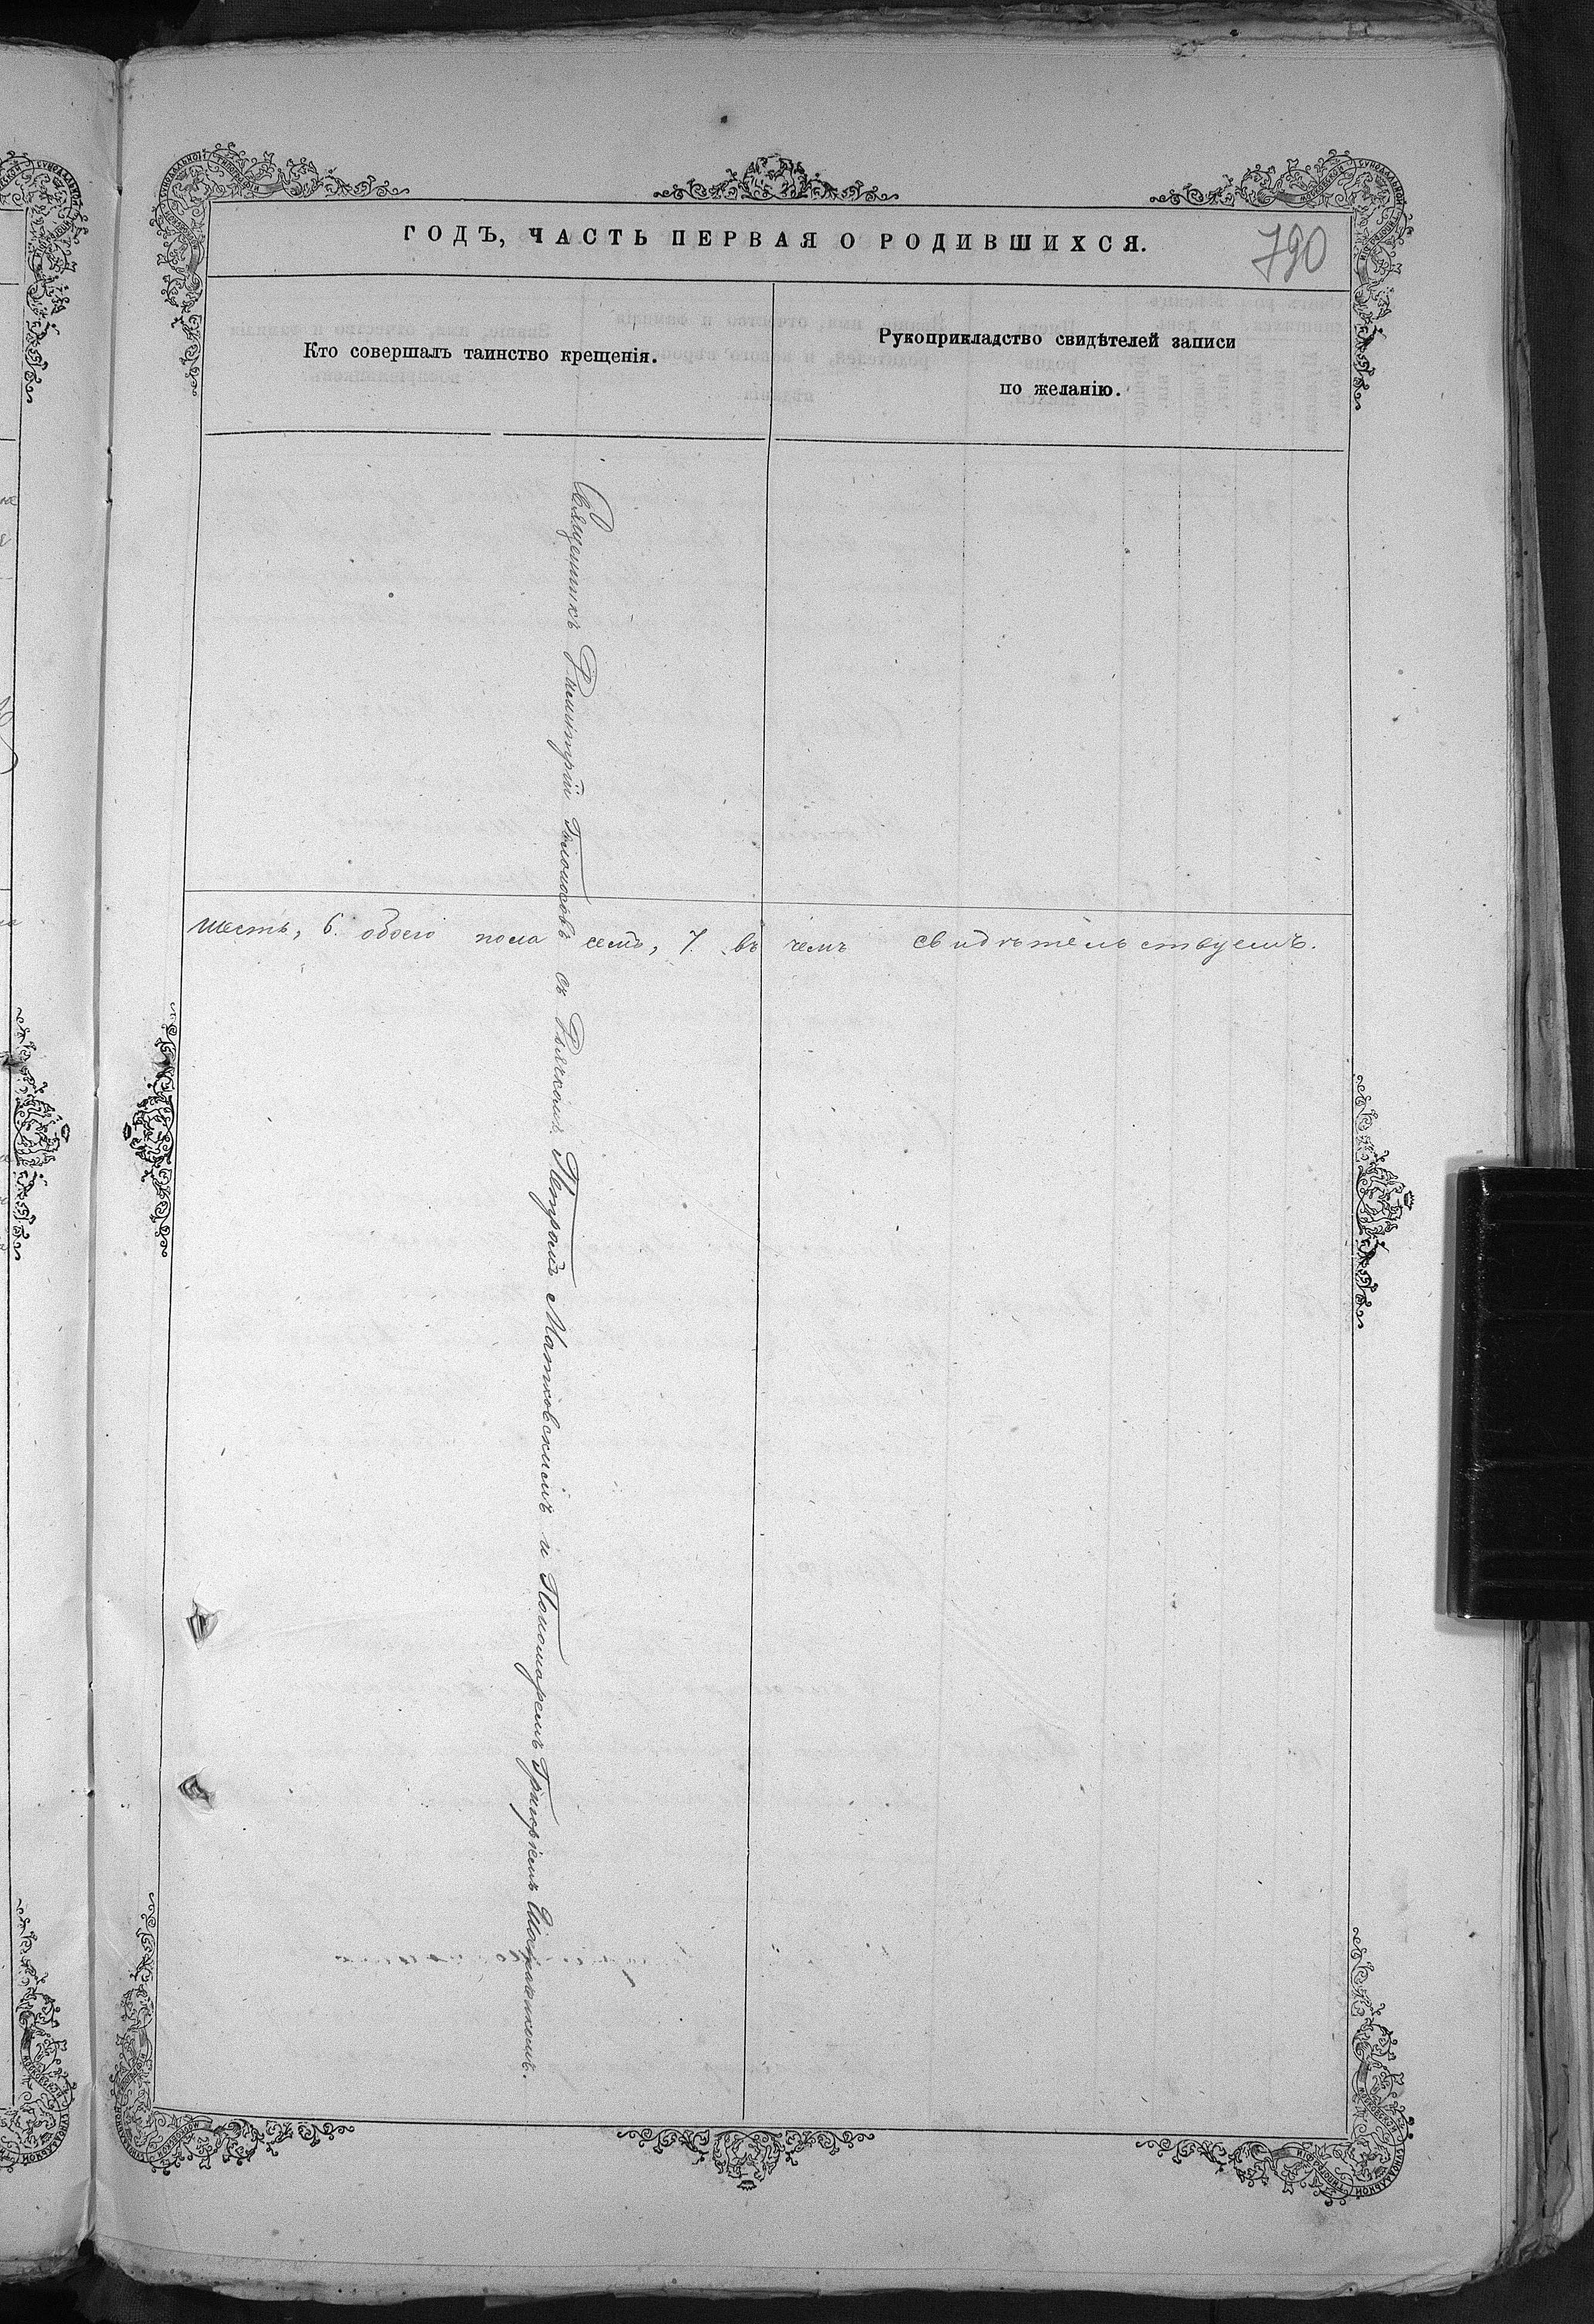 ГОДЪ, ЧАСТЬ ПЕРВАЯ О РОДИВШИХСЯ.
790
Кто совершалъ таинство крещенія.
Рукоприкладство свидѣтелей записи
по желанію.
Священникъ Димитрій съ Дьякомъ Петромъ Матковскимъ и Пономаремъ Григоріемъ
шесть, 6. обоего пола семь, 7. въ чемъ свидѣтельствуемъ.